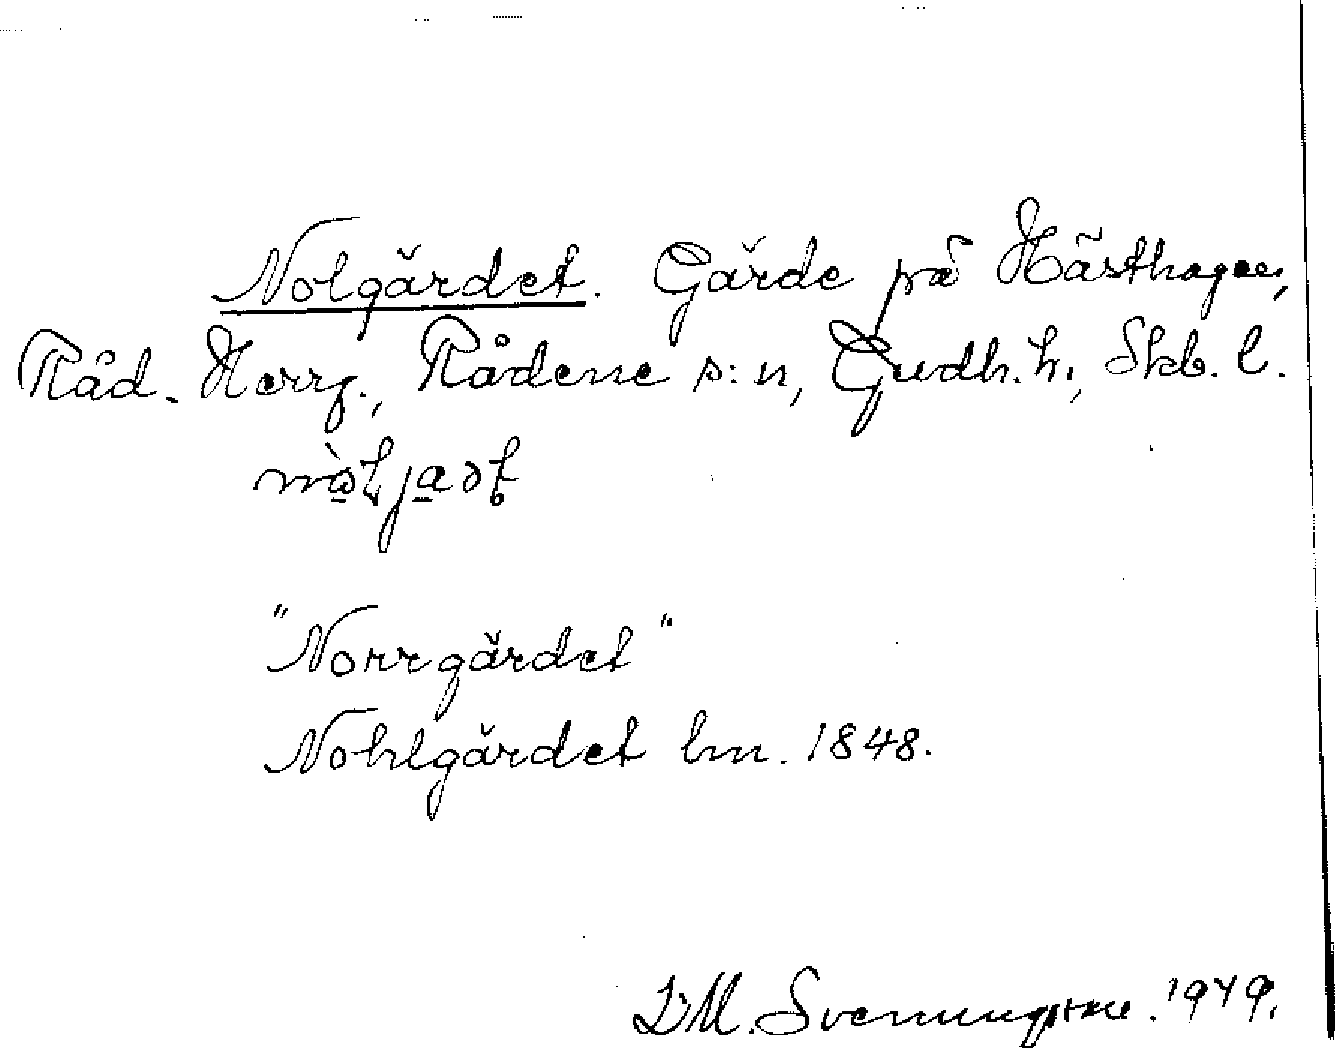 Nolgärdet. Gärde på Hästhagen,
Råd. Herrg., Rådene s:n, Gudh. h., Skb. l.
"Norrgärdet"
Nohlgärdet lm. 1848.
Svenungsson. 1949.